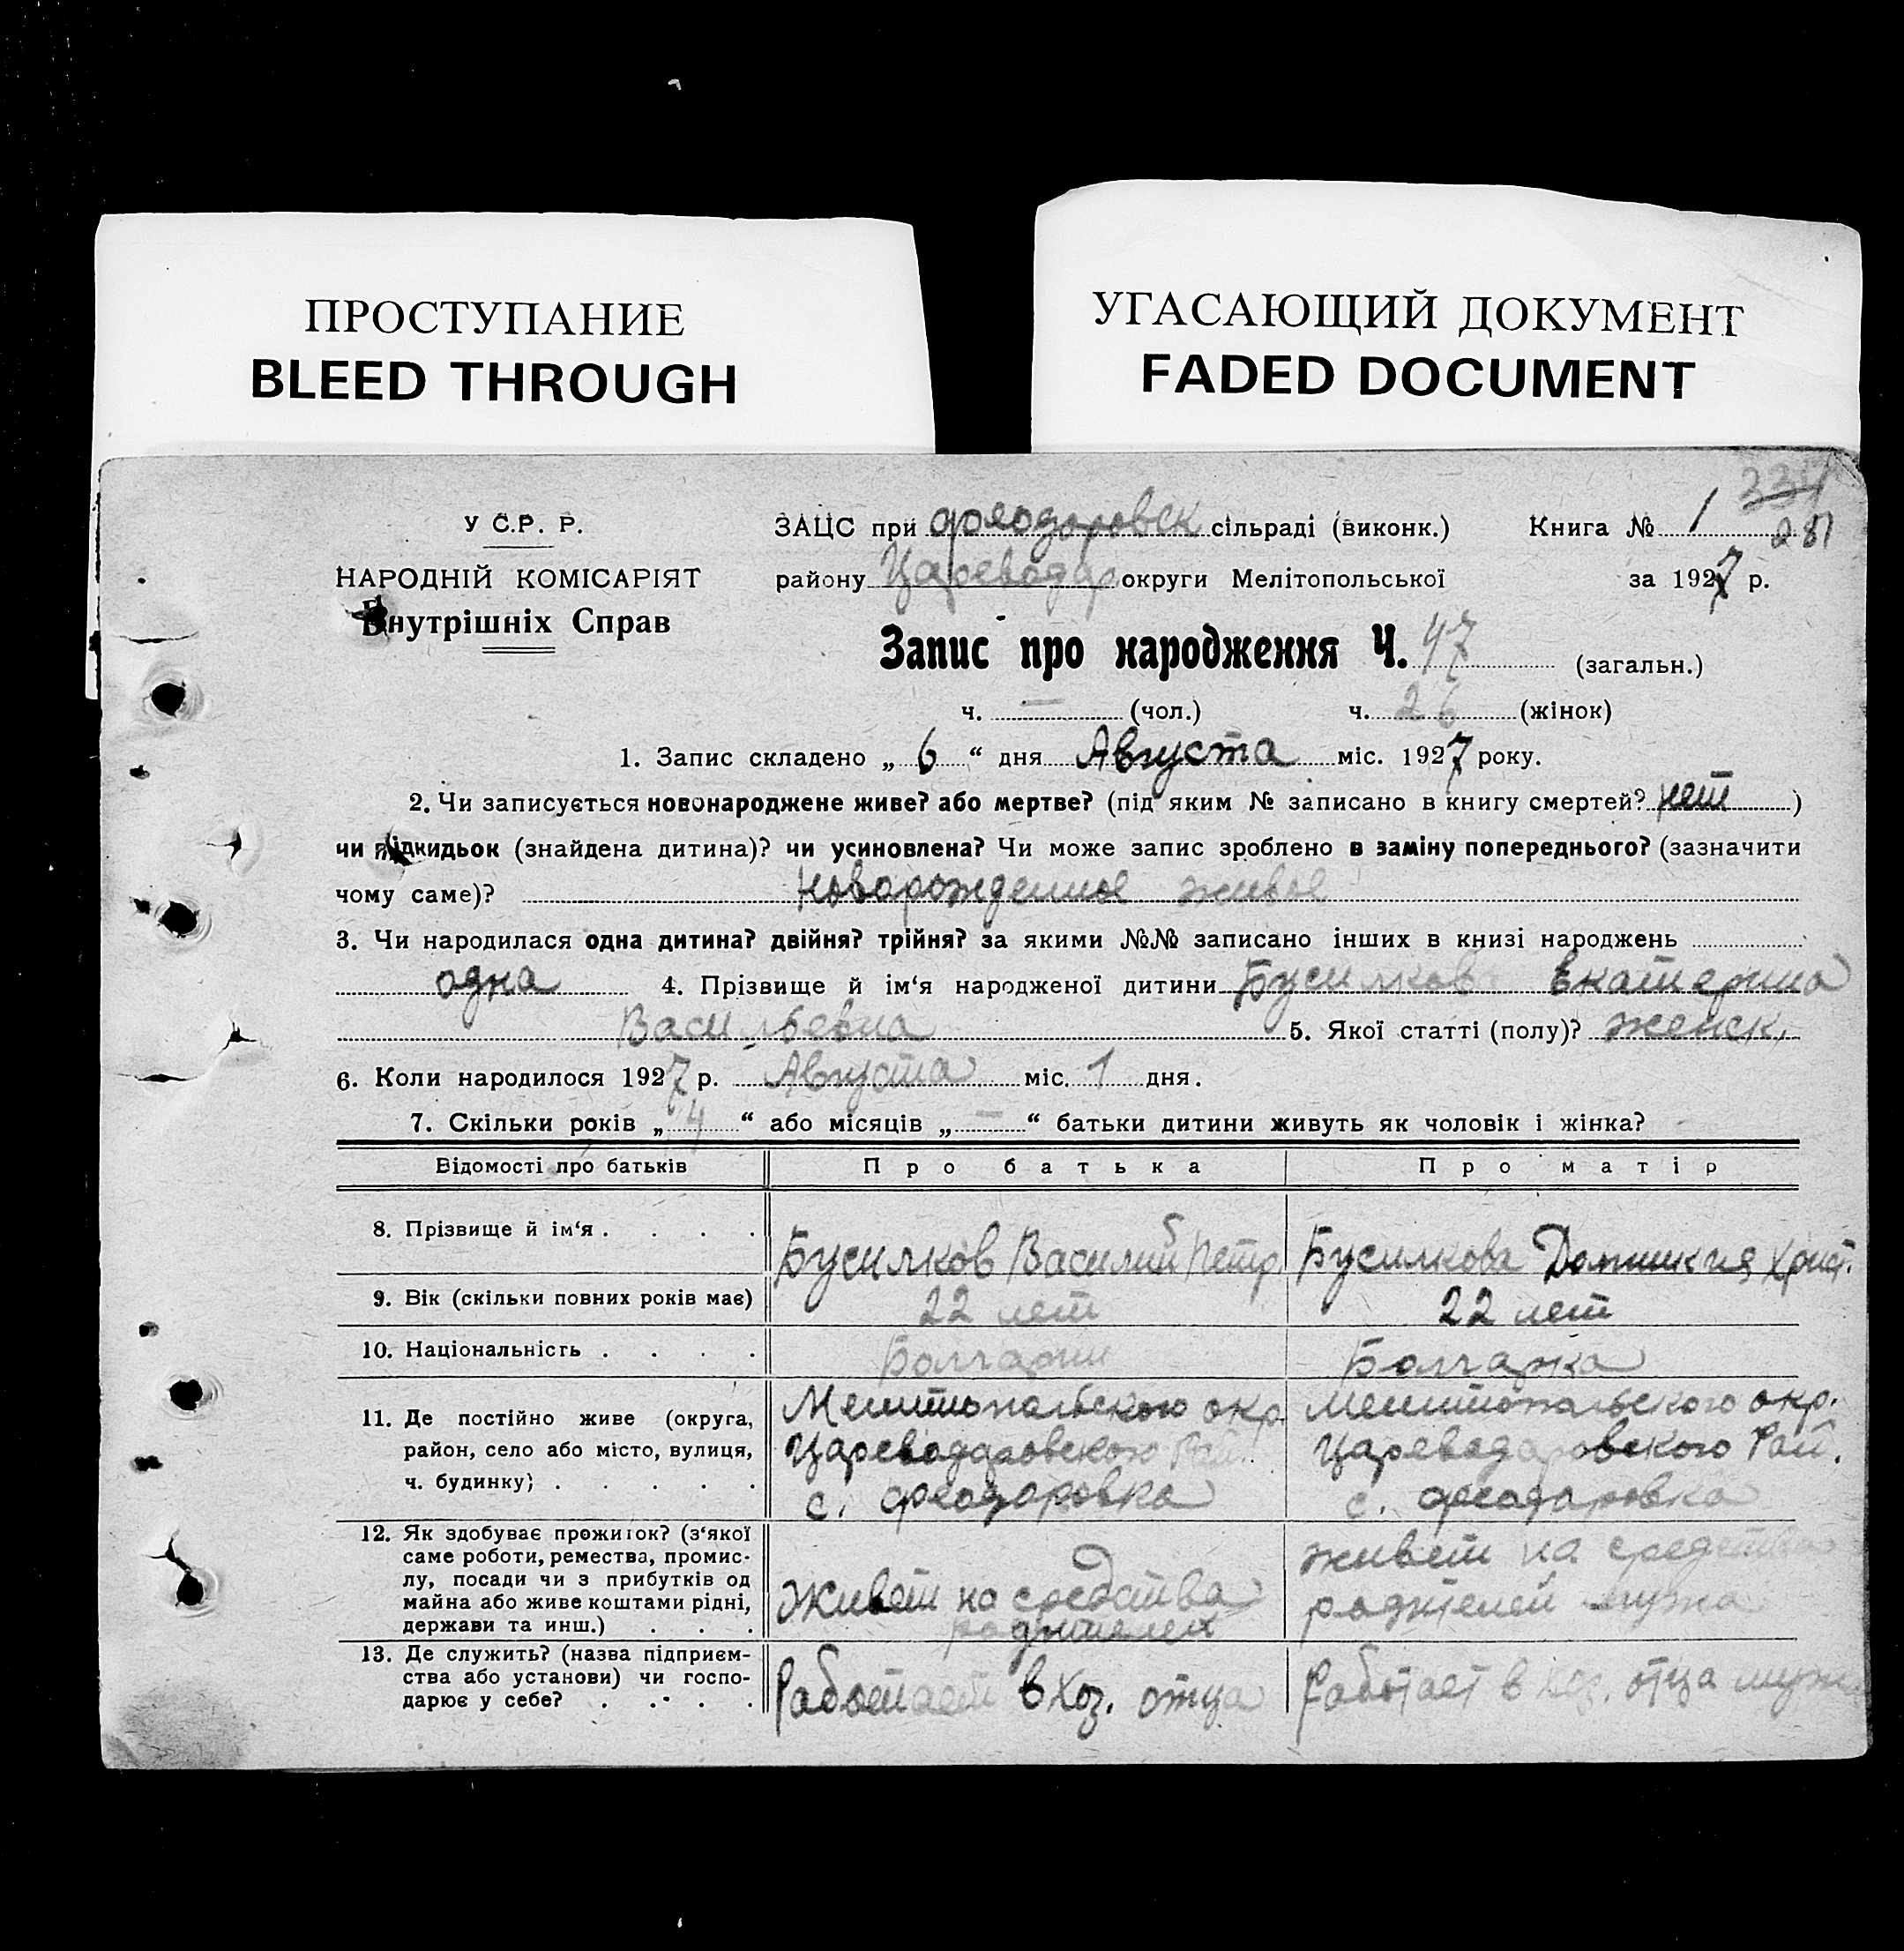 ПРОСТУПАНИЕ
BLEED THROUGH
УГАСАЮЩИЙ ДОКУМЕНТ
FADED DOCUMENT
334
281
У С.Р. Р.
НАРОДНІЙ КОМІСАРІЯТ
Внутрішніх Справ
ЗАЦС при Феодоровск сільраді (виконк.) Книга № 1
району Цареводар округи Мелітопольської за 1927 р.
Запис про народження Ч. 47 (загальн.)
ч. — (чол.) ч. 26 (жінок)
1. Запис складено „ 6 “ дня Августа міс. 1927 року.
2. Чи записується новонароджене живе? або мертве? (під яким № записано в книгу смертей? нет )
чи підкидьок (знайдена дитина)? чи усиновлена? Чи може запис зроблено в заміну попереднього? (зазначити
чому саме)? новарожденное живое
3. Чи народилася одна дитина? двійня? трійня? за якими №№ записано інших в книзі народжень
одна 4. Прізвище й ім‘я народженої дитини Бусилков Екатерина
Васильевна 5. Якої статті (полу)? женск.
6. Коли народилося 1927 р. Августа міс. 1 дня.
7. Скільки років „ 4 “ або місяців „ — “ батьки дитини живуть як чоловік і жінка?
Відомості про батьків Про батька Про матір
8. Прізвище й ім‘я . . . . Бусилков Василий Петр Бусилкова Христ.
9. Вік (скільки повних років має) 22 лет 22 лет
10. Національність . . . . Болгарин Болгарка
11. Де постійно живе (округа, Мелитопальского окр. Мелитопальского окр.
район, село або місто, вулиця, Цареводаровского Рай. Цареводаровского Рай.
ч. будинку) . . . . . с. Феодаровка с. Феодаровка
12. Як здобуває прожиток? (з‘якої
саме роботи, ремества, промис-
лу, посади чи з прибутків од
майна або живе коштами рідні,
держави та инш.) . . .
Живет на средства
родителей
живет на средства
родителей мужа
13. Де служить? (назва підприєм-
ства або установи) чи госпо-
дарює у себе? . . . .
Работает в хоз. отца Работает в хоз. отца мужа